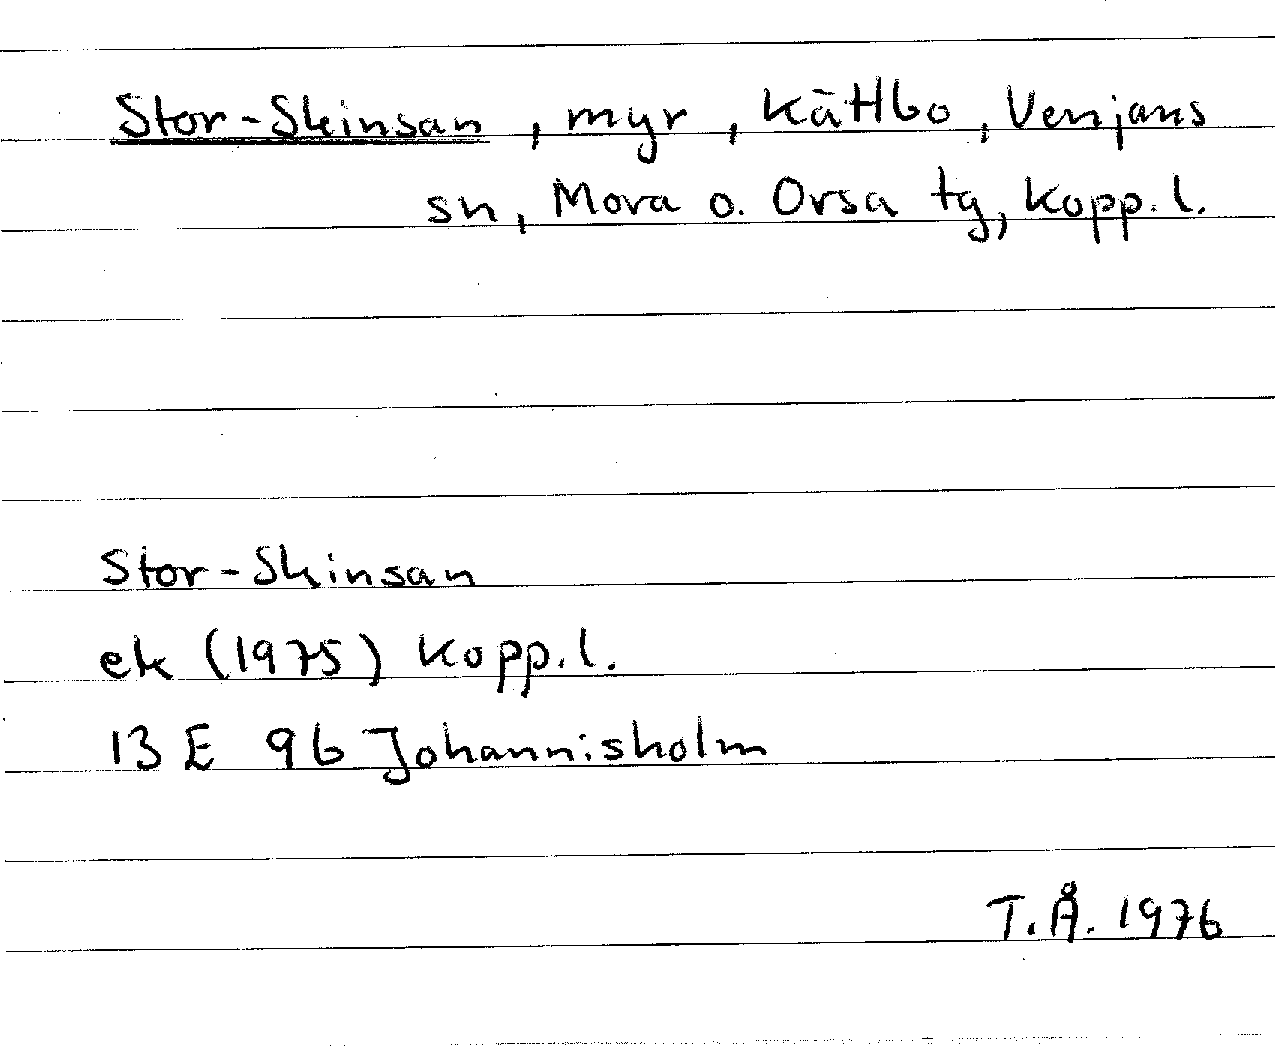 Stor-Skinsan, myr, Kättbo, Venjans
sn, Mora o. Orsa tg, Kopp. l.
Stor-Skinsan
ek (1975) Kopp. l.
13 E 9b Johannisholm
T.Å. 1976